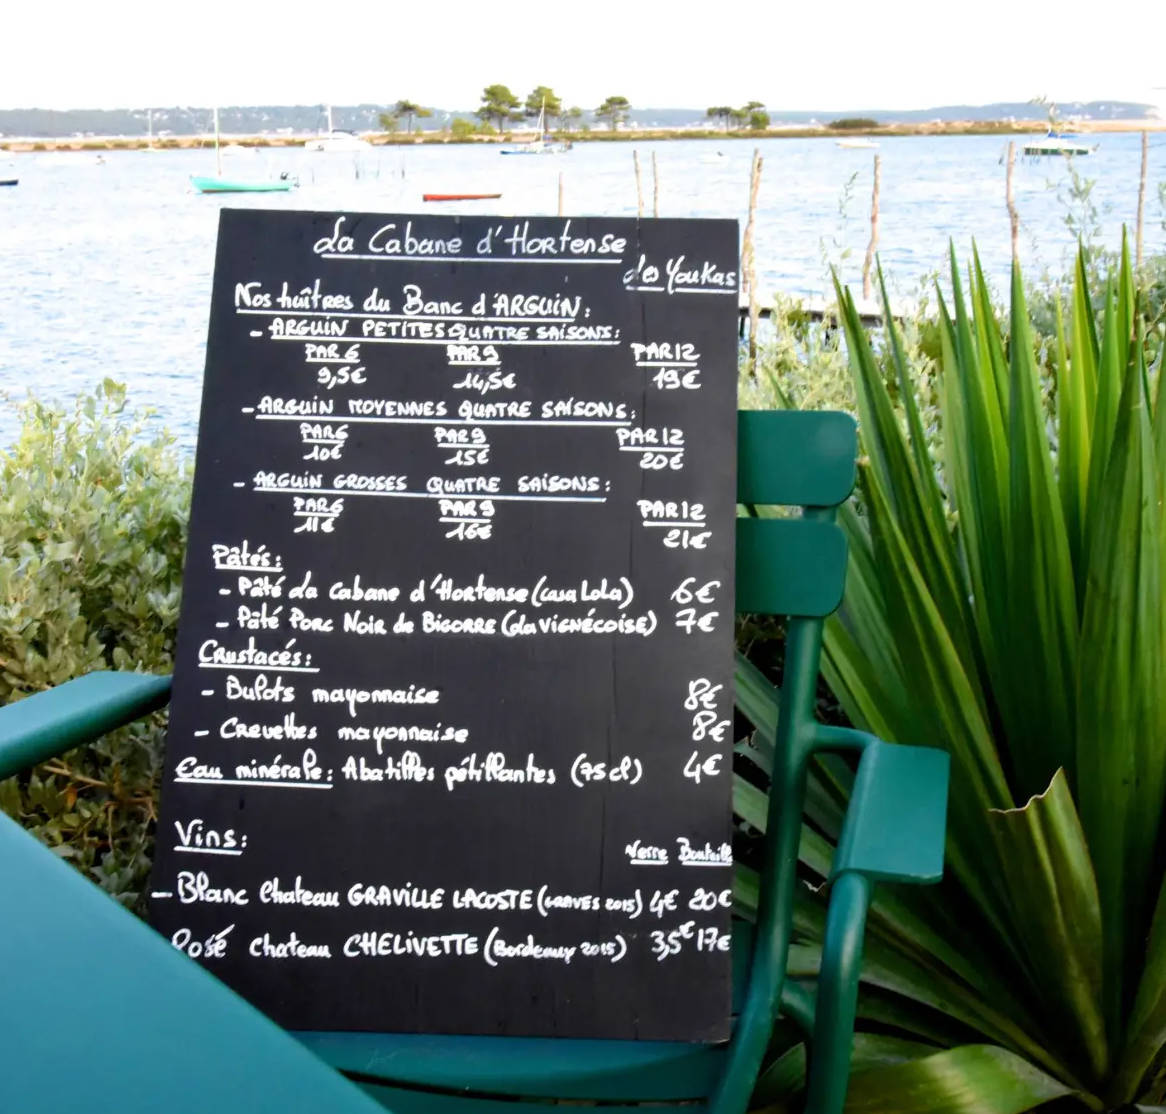 La Cabane d'Hortense
des Youkas
Nos huîtres du Banc d'ARGUIN:
- ARGUIN PETITES QUATRE SAISONS:
PAR 6 PAR 9 PAR 12
9,5€ 14,5€ 19€
- ARGUIN MOYENNES QUATRE SAISONS:
PAR 6 PAR 9 PAR 12
10€ 15€ 20€
- ARGUIN GROSSES QUATRE SAISONS:
PAR 6 PAR 9 PAR 12
11€ 16€ 21€
Pâtés:
- Pâté La Cabane d'Hortense (casa Lola) 6€
- Pâté Porc Noir de BIGORRE (La VIGNÉCOISE) 7€
Crustacés:
- Bulots mayonnaise 8€
- Crevettes mayonnaise 8€
Eau minérale: Abatilles pétillantes (75cl) 4€
Vins:
Verre Bouteille
- Blanc Chateau GRAVILLE LACOSTE (GRAVES 2015) 4€ 20€
Rosé Chateau CHELIVETTE (Bordeaux 2015) 3,5€ 17€